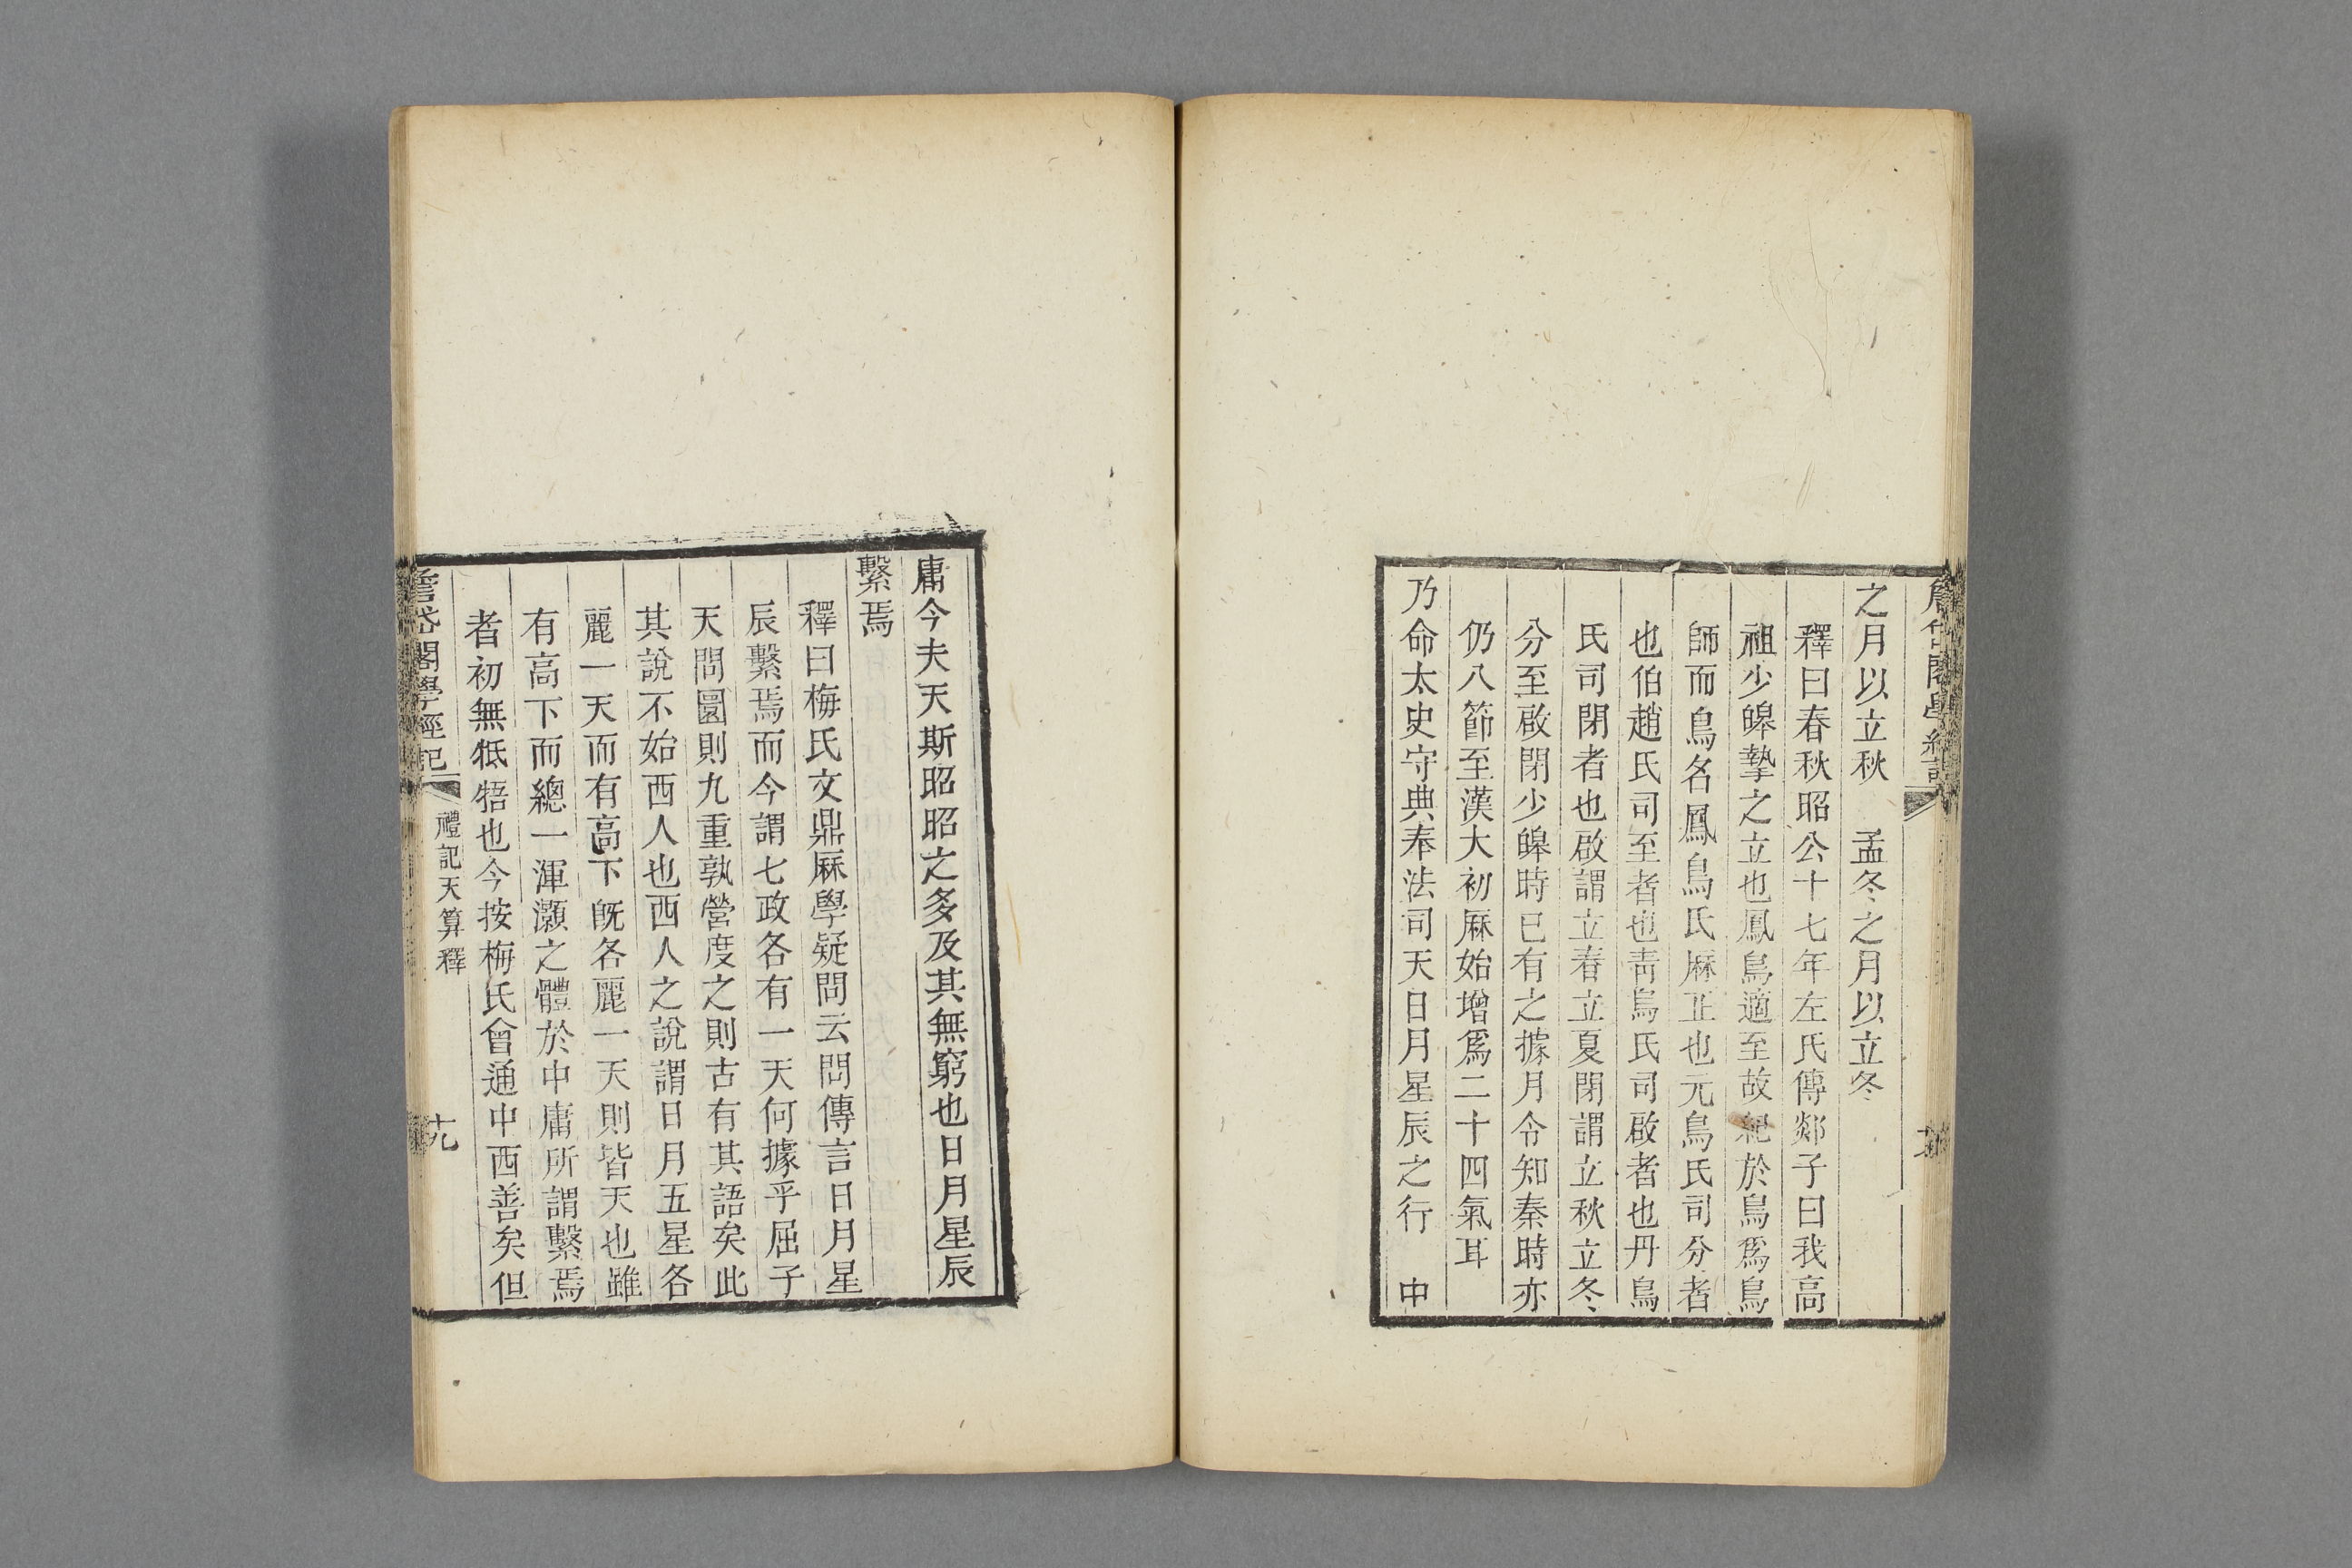 之月以立秋　孟冬之月以立冬
釋曰春秋昭公十七年左氏傳郯子曰我高
祖少皞摯之立也鳳鳥適至故紀於鳥爲鳥
師而鳥名鳳鳥氏厤正也元鳥氏司分者
也伯趙氏司至者也靑鳥氏司啟者也丹鳥
氏司閉者也啟謂立春立夏閉謂立秋立冬
分至啟閉少皞時已有之據月令知秦時亦
仍八節至漢大初厤始增爲二十四氣耳
乃命太史守典奉法司天日月星辰之行　中
庸今夫天斯昭昭之多及其無窮也日月星辰
繫焉
釋曰梅氏文鼎厤學疑問云問傳言日月星
辰繫焉而今謂七政各有一天何據乎屈子
天問圜則九重孰營度之則古有其語矣此
其說不始西人也西人之說謂日月五星各
麗一天而有高下旣各麗一天則皆天也雖
有高下而總一渾灝之體於中庸所謂繫焉
者初無牴牾也今按梅氏會通中西善矣但
詹岱閣學經記
禮記天算釋
十九